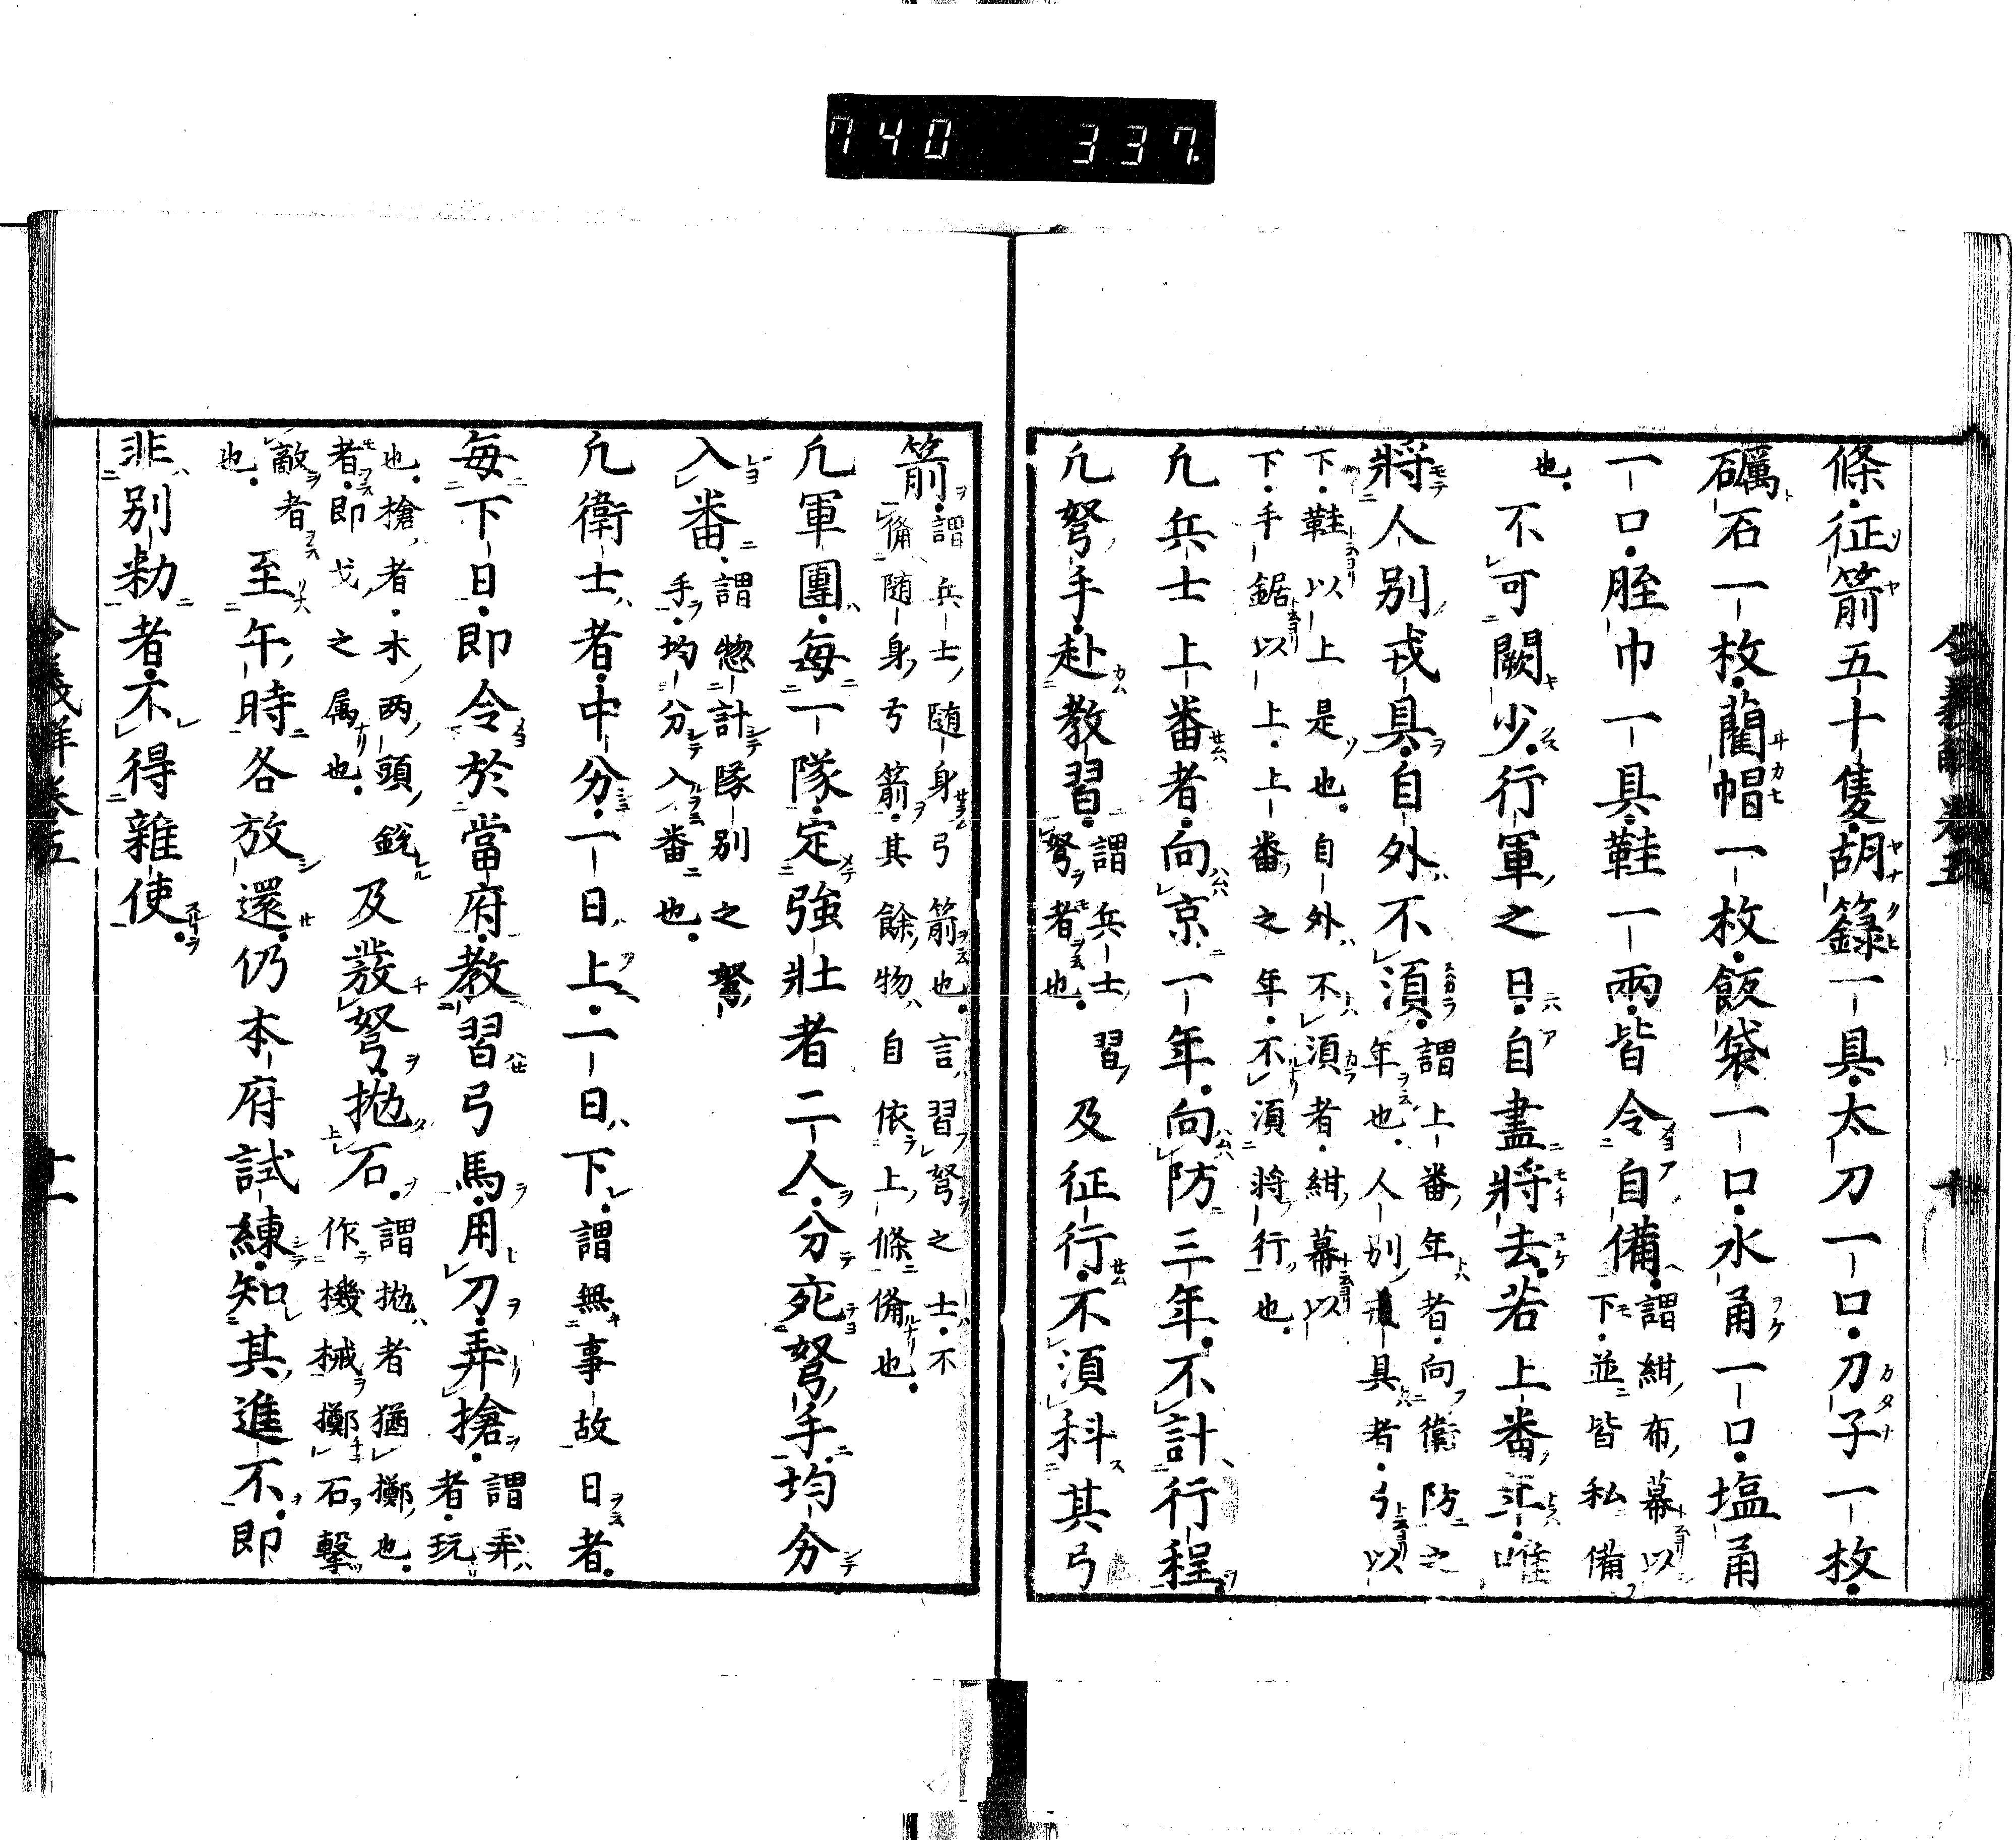 740 337.
令義解卷五 十
條征箭五十隻胡籙一具太刀一口刀子一枚
礪石一枚藺帽一枚飯袋一口水甬一口塩甬
一口脛巾一具鞋一兩皆令自備謂紺布幕以
下並皆私備
也不可闕少行軍之日自盡將去若上番年唯
將人別戎具自外不須謂上番年者向衛防之
年也人別戎具者弓以
下鞋以上是也自外不須者紺幕以
下手鋸以上上番之年不須將行也
凢兵士上番者向京一年向防三年不計行程
凢弩手赴教習謂兵士習
弩者也及征行不須科其弓
箭謂兵士随身弓箭也言習弩之士不
備随身弓箭其餘物自依上條備也
凢軍團每一隊定強壯者二人分死弩手均分
入番謂惣計隊別之弩
手均分入番也
凢衛士者中分一日上一日下謂無事故日者
每下日即令於當府教習弓馬用刀弄搶謂弄
者玩
也槍者木两頭鋭
者即戈之属也及發弩抛石謂抛者猶擲也
作機械擲石擊
敵者
也至午時各放還仍本府試練知其進不即
非別勅者不得雜使
令義解卷五 十一